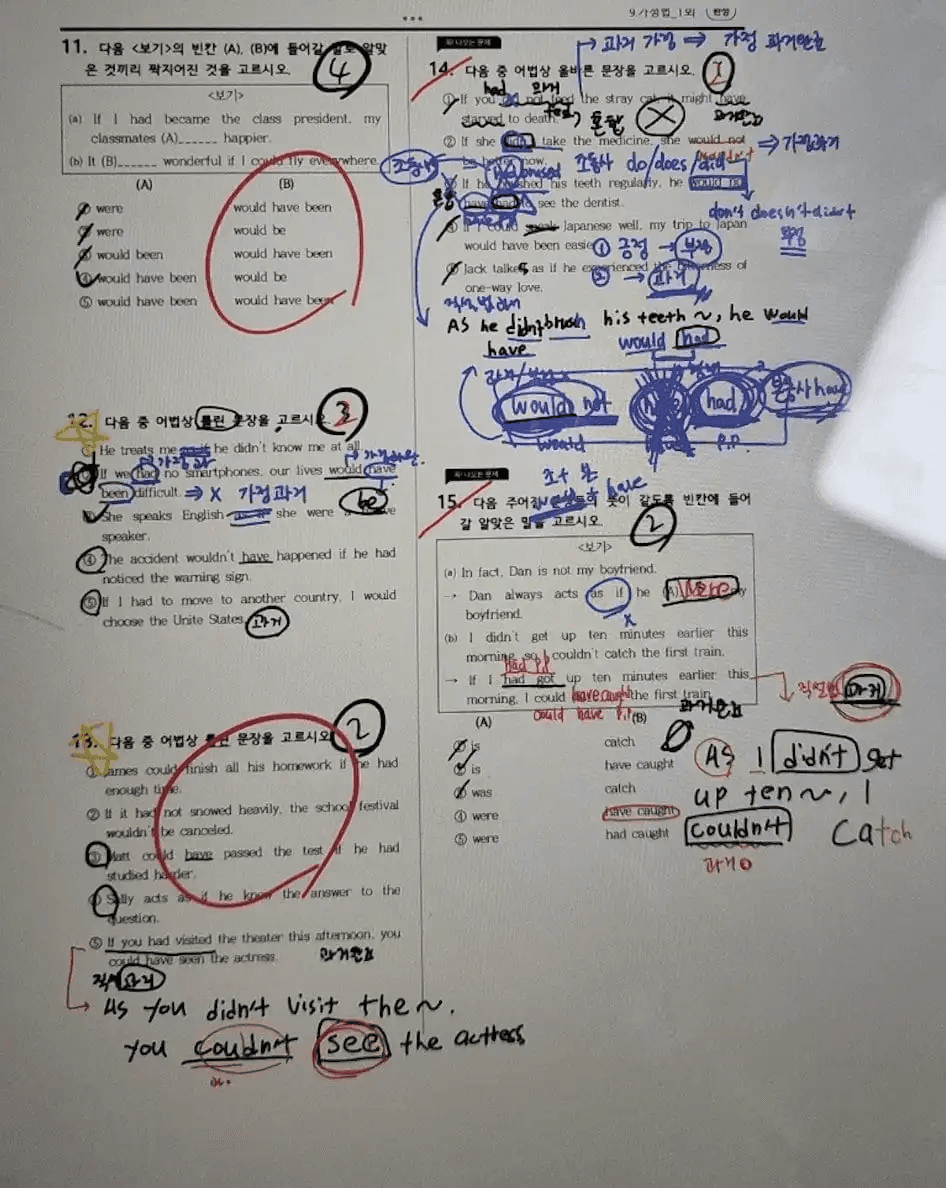 9.가정법_1회
11. 다음 <보기>의 빈칸 (A), (B)에 들어갈 알맞
은 것끼리 짝지어진 것을 고르시오.
4
<보기>
(a) If I had became the class president, my
classmates (A)______ happier.
(b) It (B)______ wonderful if I could fly everywhere.
(A) (B)
① were would have been
② were would be
③ would been would have been
④ would have been would be
⑤ would have been would have been
12. 다음 중 어법상 틀린 문장을 고르시오.
3
① He treats me as if he didn't know me at all.
가정과
② If we had no smartphones, our lives would have
been difficult. ⇒ X 가정과거
be
③ She speaks English as if she were a
speaker.
④ The accident wouldn't have happened if he had
noticed the warning sign.
⑤ If I had to move to another country, I would
choose the Unite States.
과거
13. 다음 중 어법상 틀린 문장을 고르시오.
2
① James could finish all his homework if he had
enough time.
② If it had not snowed heavily, the school festival
wouldn't be canceled.
③ Matt could have passed the test if he had
studied harder.
④ Sally acts as if he knew the answer to the
question.
⑤ If you had visited the theater this afternoon, you
could have seen the actress. 과거완료
직설 과거
As you didn't visit the ~.
you couldn't see the actress
꼭! 나오는 문제
→ 과거 가정 ⇒ 가정 과거완료
14. 다음 중 어법상 올바른 문장을 고르시오.
had 과거
① If you not feed the stray cat, it might have
starved to death. 혼합 X 과거완료
② If she didn't take the medicine, she would not ⇒ 가정과거
be better now.
조동사 do/does/did
③ If he brushed his teeth regularly, he would not
have had to see the dentist.
혼합
don't doesn't didn't
부정
④ If I could speak Japanese well, my trip to Japan
would have been easier.
① 긍정 → 부정
⑤ Jack talkes as if he experienced the of
one-way love.
② → 과거
직설법
As he didn't brush his teeth ~, he would
have
would had
would not had 본동사 have
would P.P.
조+본
have
꼭! 나오는 문제
15. 다음 주어진 문장들의 뜻이 같도록 빈칸에 들어
갈 알맞은 말을 고르시오.
2
<보기>
(a) In fact, Dan is not my boyfriend.
→ Dan always acts as if he (A) were my
boyfriend.
X
(b) I didn't get up ten minutes earlier this
morning, so I couldn't catch the first train.
Had P.P
→ If I had got up ten minutes earlier this
morning, I could have caught the first train.
could have P.P
직설법 과거
과거완료
(A) (B)
① is catch
② is have caught
③ was catch
④ were have caught
⑤ were had caught
As I didn't get
up ten ~, I
couldn't catch
과거